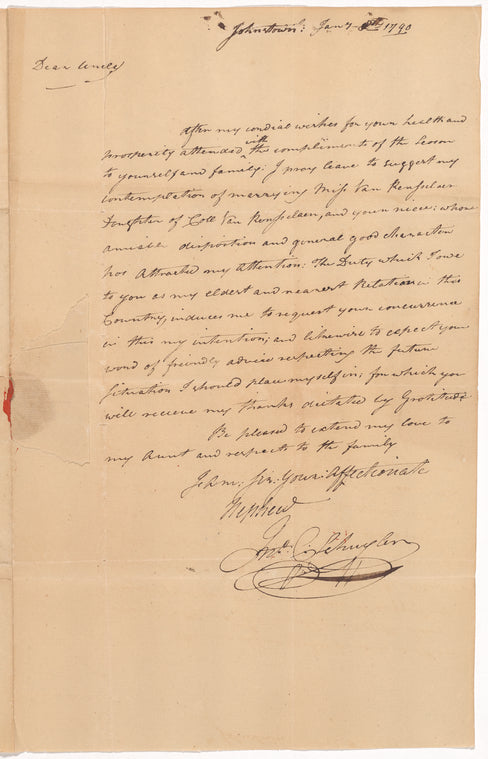 Johnstown: Jany 8th 1790
Dear Uncle
After my cordial wishes for your health and
prosperity attended with the compliments of the Season
to yourself and family: I may leave to suggest my
contemplation of marrying Miss Van Renselaer
Daughter of Coll Van Renselaer, and your niece: whose
amiable disposition and general good character
has Attracted my attention: The Duty which I owe
to you as my eldest and nearest Relation in this
Country, induces me to request your concurrence
in this my intention; and likewise to expect your
word of friendly advice respecting the future
Situation I should place myself in; for which you
will receive my thanks dictated by Gratitude
Be pleased to extend my love to
my Aunt and respects to the family
I am: Sir: Your: Affectionate
Nephew
C: Schuyler